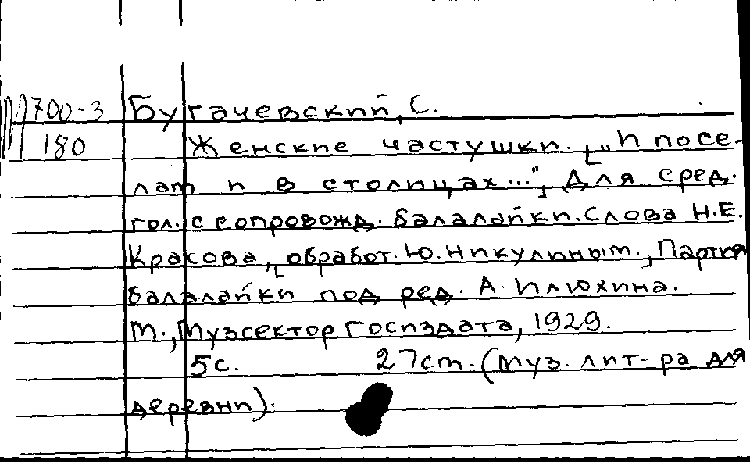 М 700-3 Бугачевский, С.
180 Женские частушки. [„И посе-
лам и в столицах..."], Для сред.
гол. с сопровожд. балалайки. Слова Н.Е.
Красова, [обработ. Ю. Никулиным., Партия
балалайки под ред. А. Илюхина.
М., Музсектор Госиздата, 1929.
5 с. 27 cm. (Муз. лит-ра для
деревни).